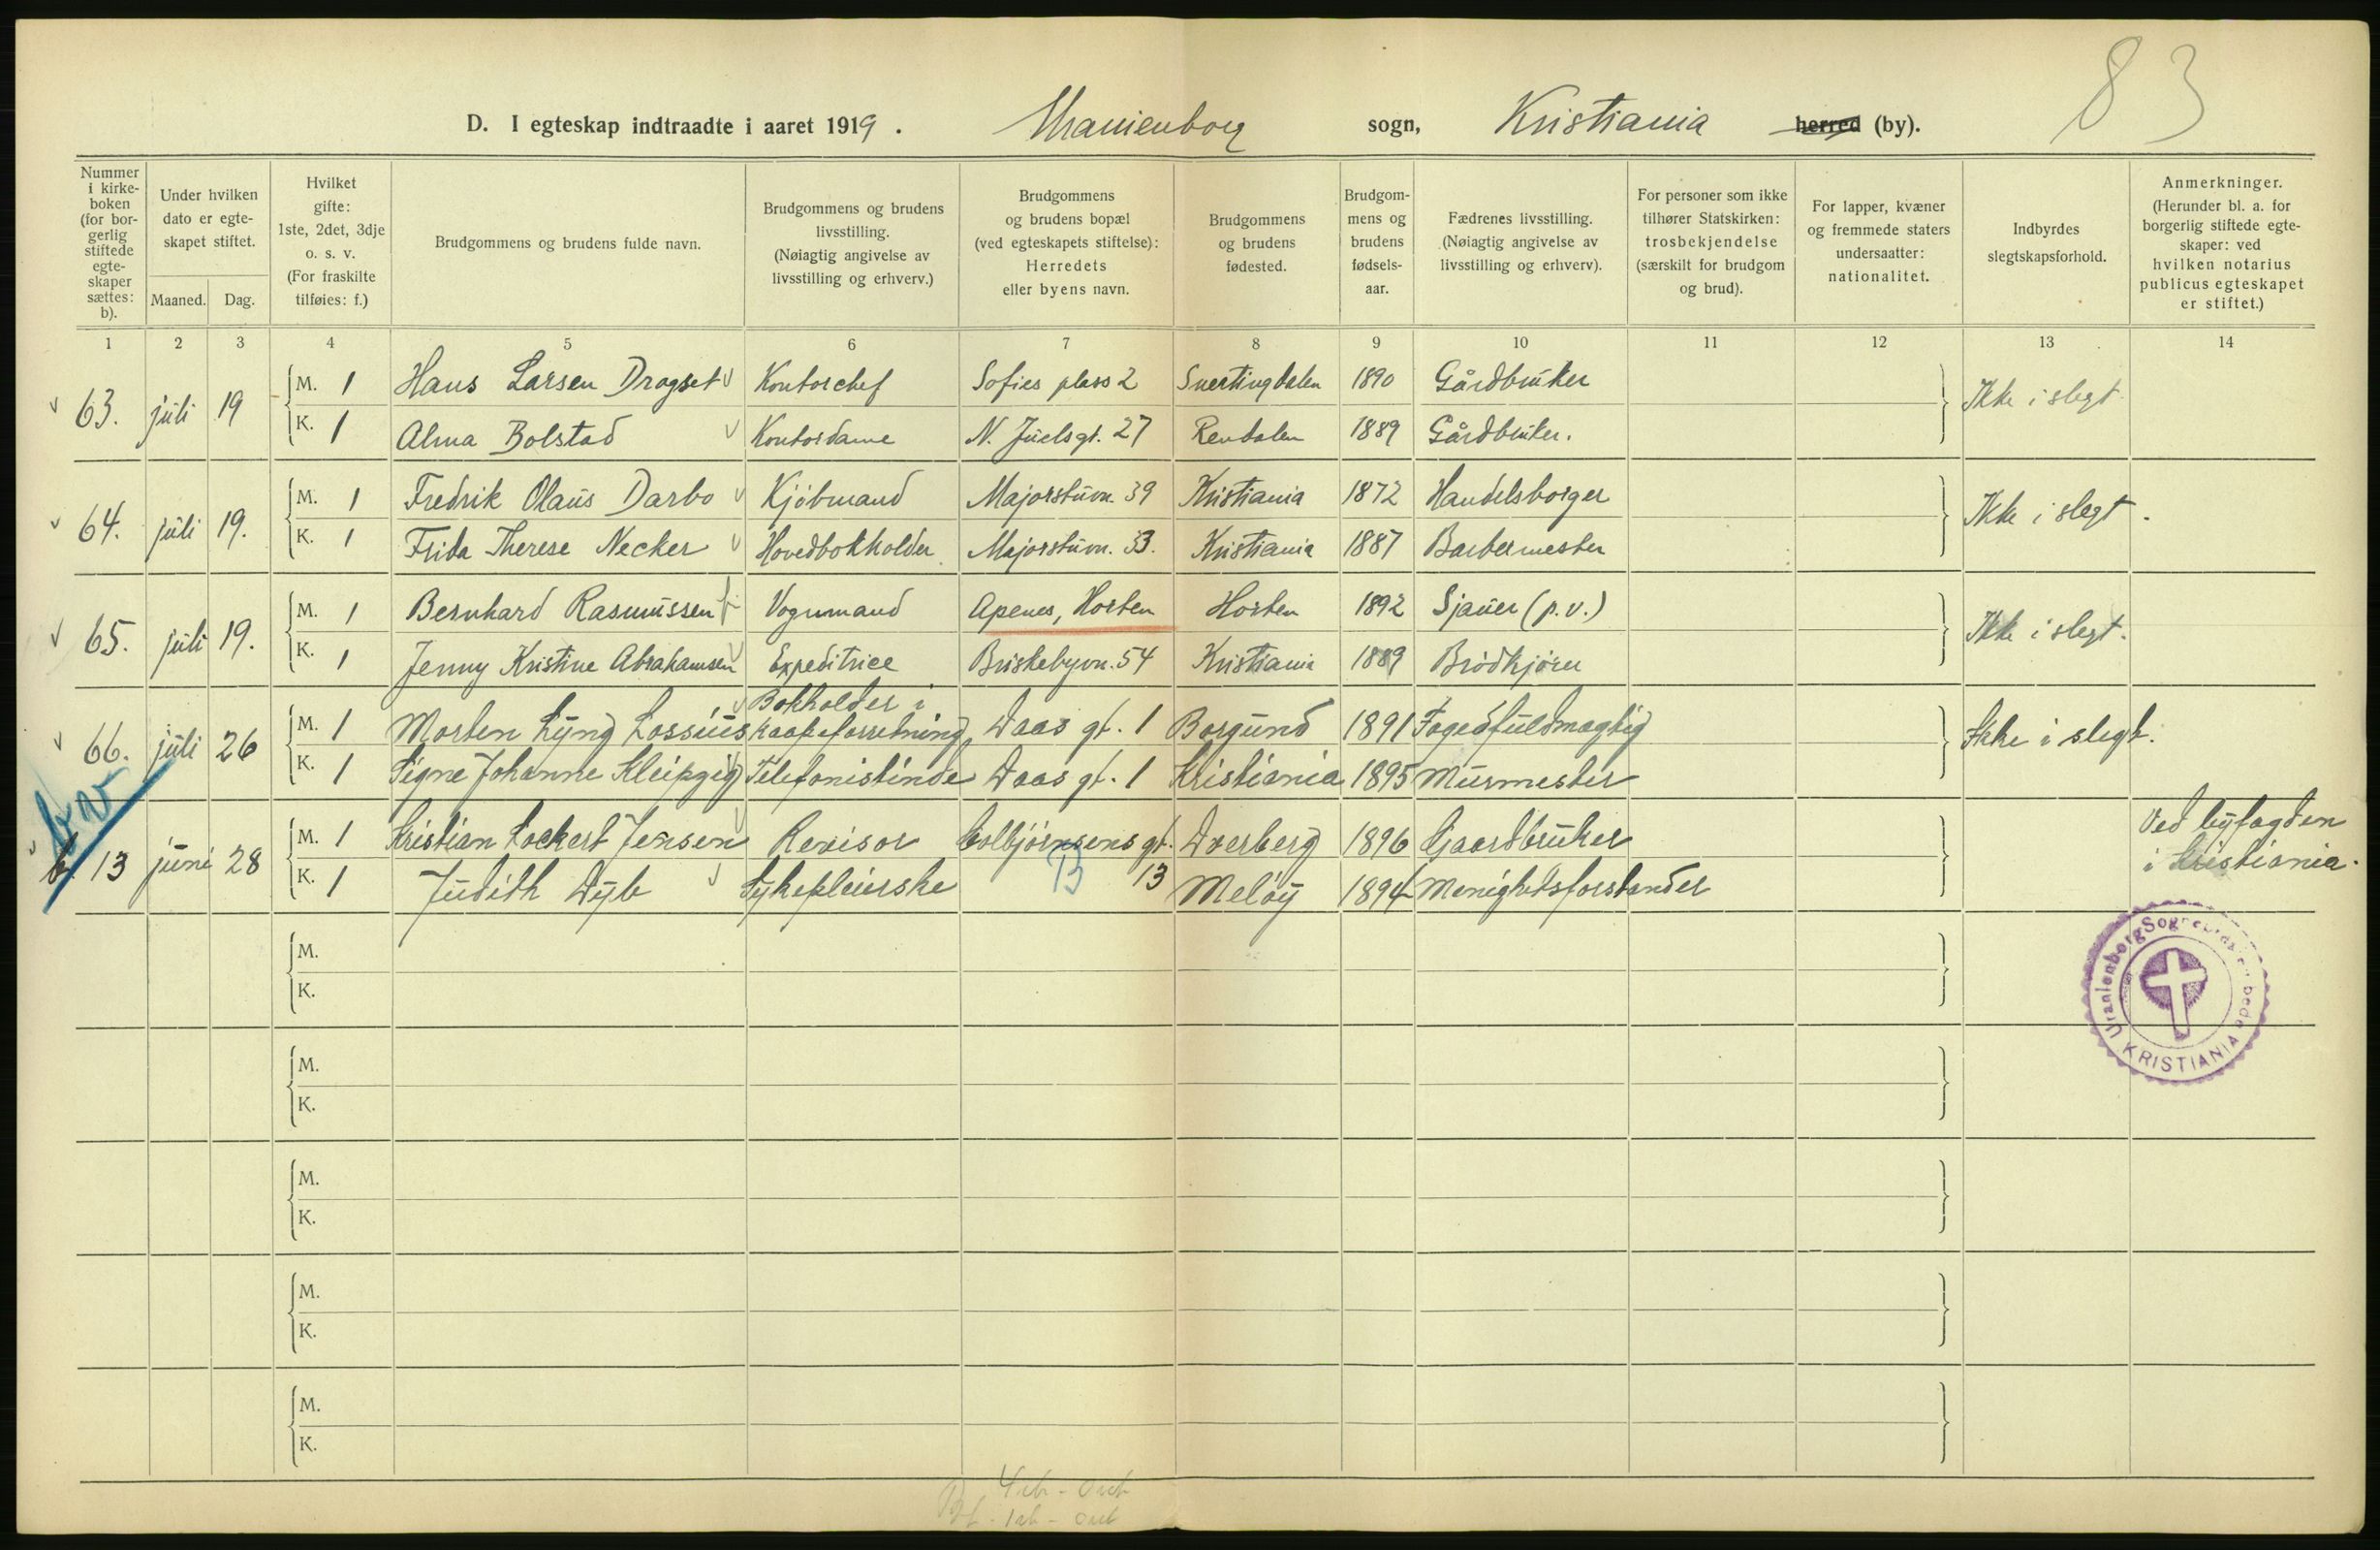 83
D. I egteskap indtraadte i aaret 1919. Uranienborg sogn, Kristiania herred (by).
Nummer i kirke-boken (for bor-gerlig stiftede egte-skaper sættes: b).
Under hvilken dato er egte-skapet stiftet.
Maaned. Dag.
Hvilket gifte: 1ste, 2det, 3dje o. s. v. (For fraskilte tilføies: f.)
Brudgommens og brudens fulde navn.
Brudgommens og brudens livsstilling. (Nøiagtig angivelse av livsstilling og erhverv.)
Brudgommens og brudens bopæl (ved egteskapets stiftelse): Herredets eller byens navn.
Brudgommens og brudens fødested.
Brudgom-mens og brudens fødsels-aar.
Fædrenes livsstilling. (Nøiagtig angivelse av livsstilling og erhverv).
For personer som ikke tilhører Statskirken: trosbekjendelse (særskilt for brudgom og brud).
For lapper, kvæner og fremmede staters undersaatter: nationalitet.
Indbyrdes slegtskapsforhold.
Anmerkninger. (Herunder bl. a. for borgerlig stiftede egte-skaper: ved hvilken notarius publicus egteskapet er stiftet.)
1 2 3 4 5 6 7 8 9 10 11 12 13 14
63. juli 19 M. 1 Hans Larsen Dragset Kontorchef Sofies plass 2 Snertingdalen 1890 Gårdbruker Ikke i slegt
K. 1 Alma Bolstad Kontordame N. Juels gt. 27 Rendalen 1889 Gårdbruker.
64. juli 19. M. 1 Fredrik Olaus Darbo Kjöbmand Majorstuvn. 39 Kristiania 1872 Handelsborger Ikke i slegt.
K. 1 Frida Therese Necker Hovedbokholder Majorstuvn. 33. Kristiania 1887 Barbermester
65. juli 19. M. 1 Bernhard Rasmussen Vognmand Apenes, Horten Horten 1892 Sjauer (p.v.) Ikke i slegt.
K. 1 Jenny Kristine Abrahamsen Expeditrice Briskebyvn. 54 Kristiania 1889 Brödkjörer
66. juli 26 M. 1 Morten Lyng Lossius Bokholder i kaapeforretning Daas gt. 1 Borgund 1891 Fogedfuldmægtig Ikke i slegt.
K. 1 Signe Johanne Kleipzig Telefonistinde Daas gt. 1 Kristiania 1895 Murmester
b. 13 juni 28 M. 1 Kristian Lockert Jensen Revisor Colbjörnsens gt. Dverberg 1896 Gaardbruker Ved byfogden i Kristiania.
K. 1 Judith Dyb Sykepleierske 13 Melöy 1894 Menighetsforstander
M.
K.
M.
K.
M.
K.
M.
K.
M.
K.
Uranienborg
KRISTIANIA